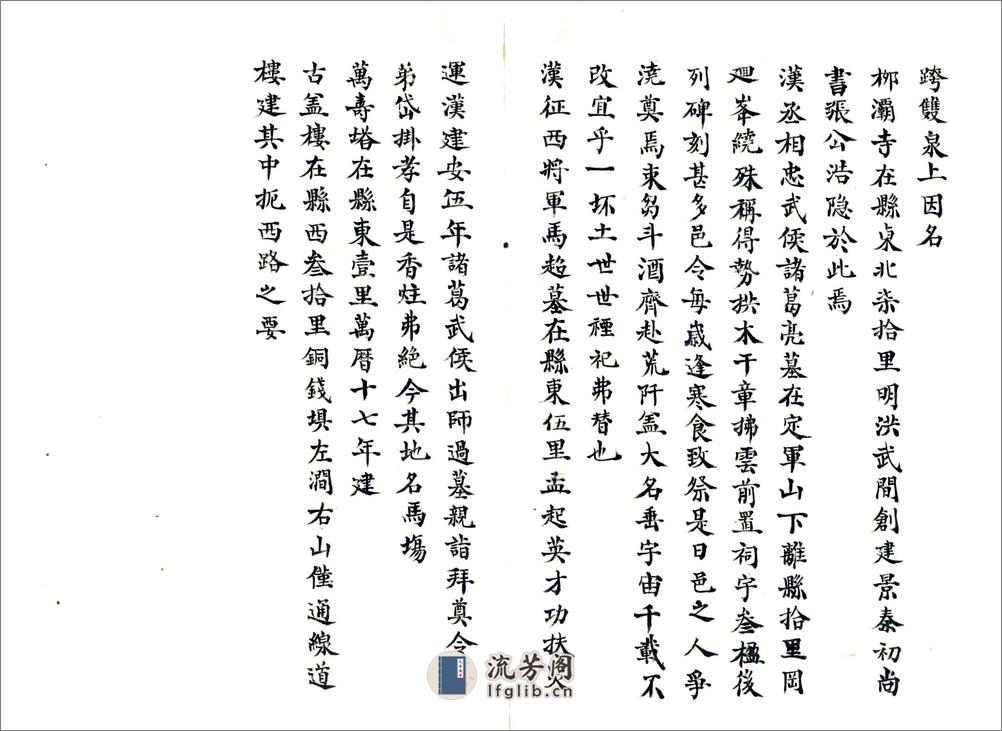 跨雙泉上因名
栁灞寺在縣東北柒拾里明洪武間創建景泰初尚
書張公浩隐於此焉
漢丞相忠武侯諸葛亮墓在定軍山下離縣拾里岡
廻峯繞殊稱得勢拱木干章拂雲前置祠宇叁楹後
列碑刻甚多邑令每歲逢寒食致祭是日邑之人爭
澆奠焉束芻斗酒齊赴荒阡盖大名垂宇宙千載不
改宜乎一坏土世世種祀弗替也
漢征西將軍馬超墓在縣東伍里孟起英才功扶火
運漢建安伍年諸葛武侯出師過墓親詣拜奠令
弟岱掛孝自是香炷弗絶今其地名馬塲
萬壽塔在縣東壹里萬暦十七年建
古盖樓在縣西叁拾里銅錢垻左澗右山僅通線道
樓建其中扼西路之要
流芳阁
lfglib.cn